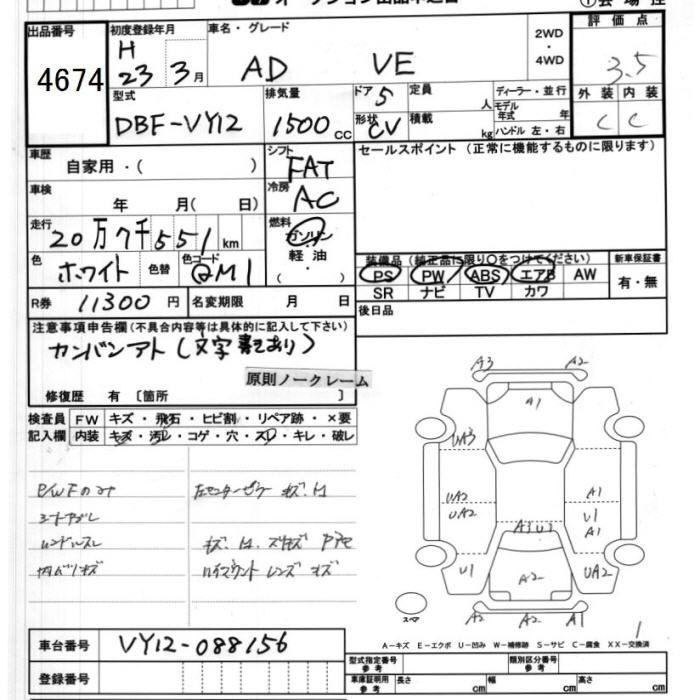 出品番号 4674
初度登録年月 H 23 3月
車名・グレード AD VE
2WD・4WD
評価点 3.5
型式 DBF-VY12
排気量 1500 cc
ドア 5
定員 人
形状 CV
積載 kg
ディーラー・並行
モデル年式 年
ハンドル 左・右
外装 C
内装 C
車歴 自家用・( )
シフト FAT
セールスポイント(正常に機能するものに限ります)
車検 年 月( 日)
冷房 AC
走行 20万7千551km
燃料 ガソリン 軽油 ( ・ )
色 ホワイト 色替 色コード QM1
装備品(純正品に限り○をつけてください) 新車保証書
PS PW ABS エアB AW 有・無
SR ナビ TV カワ
R券 11300円 名変期限 月 日
後日品
注意事項申告欄(不具合内容等は具体的に記入して下さい)
カンバンアト(文字書きあり)
原則ノークレーム
修復歴 有 [箇所 ]
検査員記入欄
FW キズ・飛石・ヒビ割・リペア跡・×要
内装 キズ・汚レ・コゲ・穴・スレ・キレ・破レ
シートヨゴレ
ハンドルスレ
内バリキズ
ハイマウントレンズキズ
A3 A2
A1
UA3
UA2 A1
UA2 U1
A1
A3 U3
U1 A2 UA2
スペア
A2 A2 A1
1
A-キズ E-エクボ U-凹み W-補修跡 S-サビ C-腐食 XX-交換済
車台番号 VY12-088156
登録番号
型式指定番号 参考 類別区分番号 参考
車庫証明用 参考 長さ cm 幅 cm 高さ cm